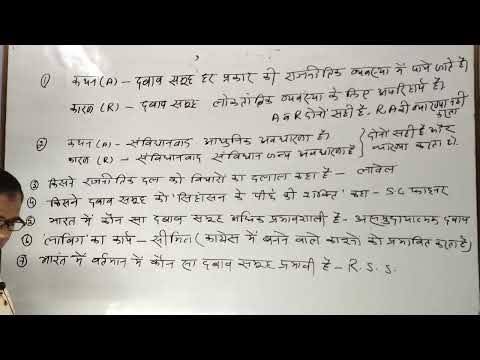 ① कथन (A) - दबाव समूह हर प्रकार की राजनीतिक व्यवस्था में पाये जाते है।
कारण (R) - दबाव समूह लोकतांत्रिक व्यवस्था के लिए अपरिहार्य है।
A व R दोनों सही है, R, A की व्याख्या नहीं करता
② कथन (A) - संविधानवाद आधुनिक अवधारणा है।
कारण (R) - संविधानवाद संविधान जन्य अवधारणा है।
दोनों सही है और व्याख्या करता है।
③ किसने राजनीतिक दल को विचारों का दलाल कहा है - लावेल
④ किसने दबाव समूह को 'सिंहासन के पीछे की शक्ति' कहा - S.G फाइनर
⑤ भारत में कौन सा दबाव समूह अधिक प्रभावशाली है - समुदायात्मक दबाव
⑥ लाबिंग का कार्य - सीमित (कांग्रेस में बनने वाले कानूनों को प्रभावित करता है)
⑦ भारत में वर्तमान में कौन सा दबाव समूह प्रभावी है - R.S.S.